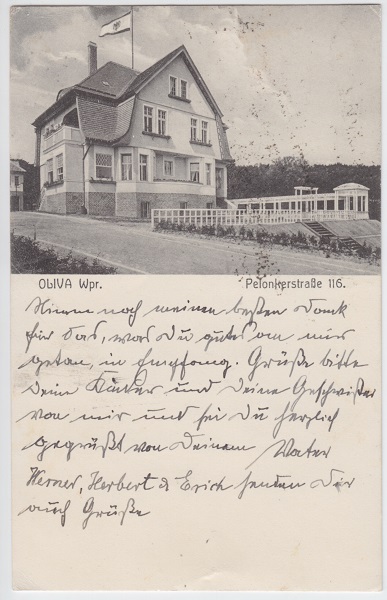 OLIVA Wpr. Pelonkerstraße 116.
Nimm noch meinen besten Dank
für das, was Du gutes an mir
getan, in Empfang. Grüße bitte
Deine Kinder und Deine Geschwister
von mir und sei Du herzlich
gegrüßt von Deinem Vater
Werner, Herbert & Erich senden Dir
auch Grüße